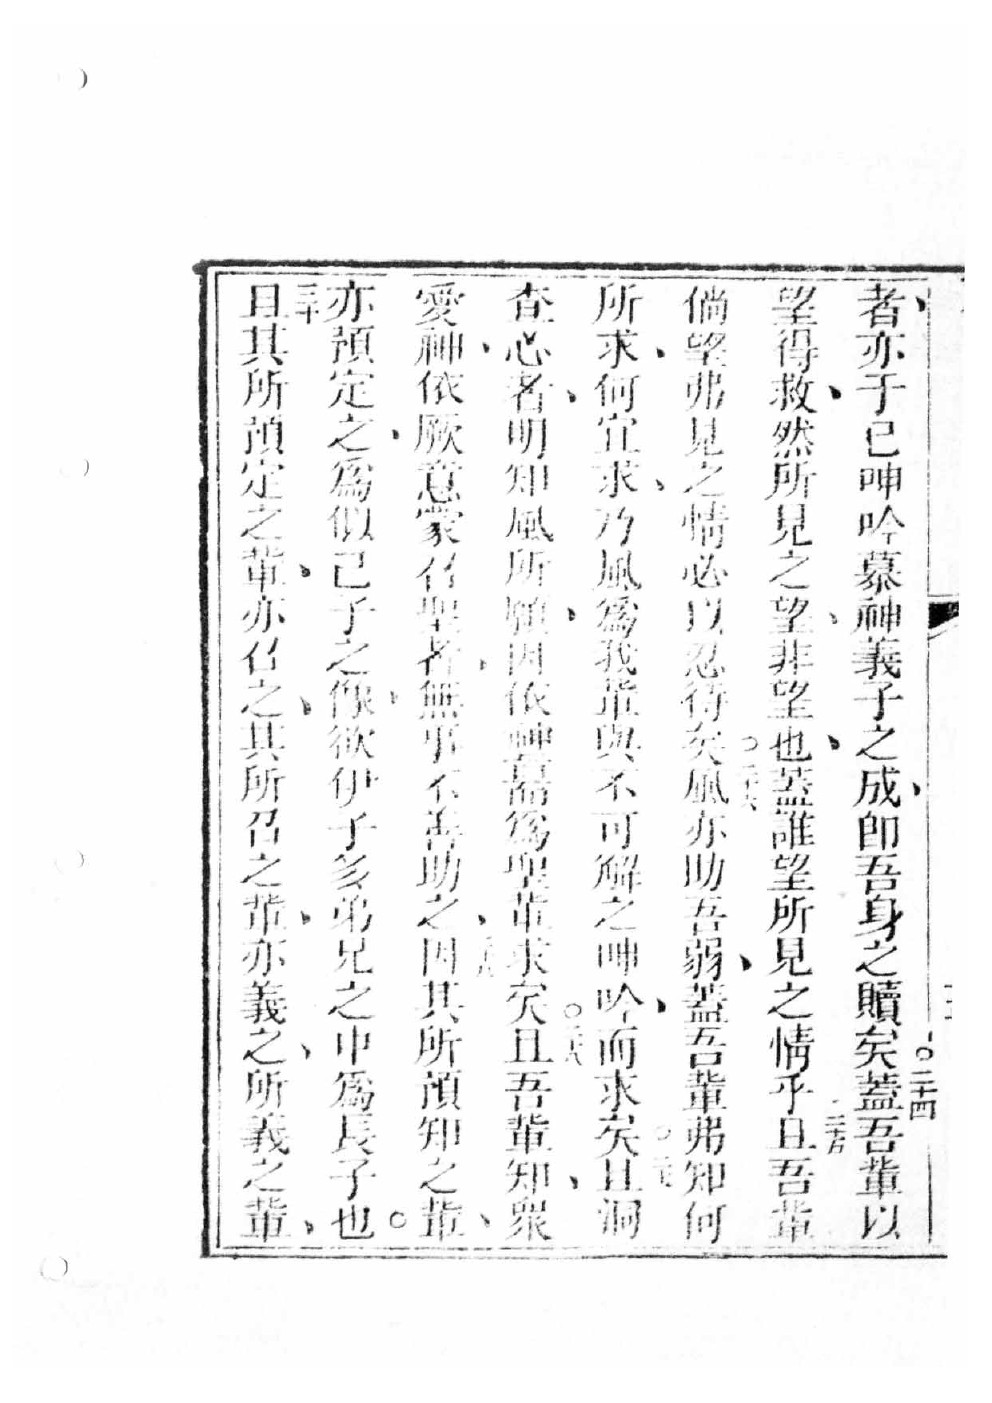 者、亦于己呻吟慕神義子之成、卽吾身之贖矣。二十四蓋吾輩以
望得救、然所見之望、非望也、蓋誰望所見之情乎二十五且吾輩
倘望弗見之情必以忍待矣○二十六風亦助吾弱、蓋吾輩弗知何
所求、何宜求、乃風爲我輩與不可解之呻吟、而求矣○二十七且洞
查心者、明知風所願、因依神爲聖輩求矣○二十八且吾輩知、衆
愛神、依厥意蒙召聖者、無事不善助之、因其所預知之輩、
亦預定之、爲似己子之像、欲伊子多弟兄之中爲長子也。
三十且其所預定之輩、亦召之、其所召之輩、亦義之、所義之輩、